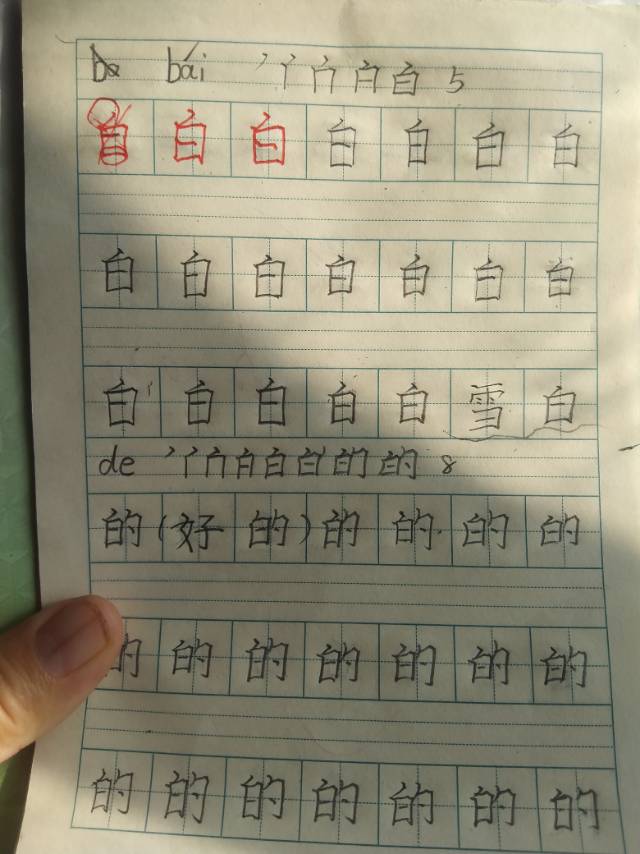 bái 丿亻白白白 5
白白白白白白
白白白白白白白
白白白白白雪白
de 丿亻白白白的的 8
的(好的)的的的的
的的的的的的的
的的的的的的的